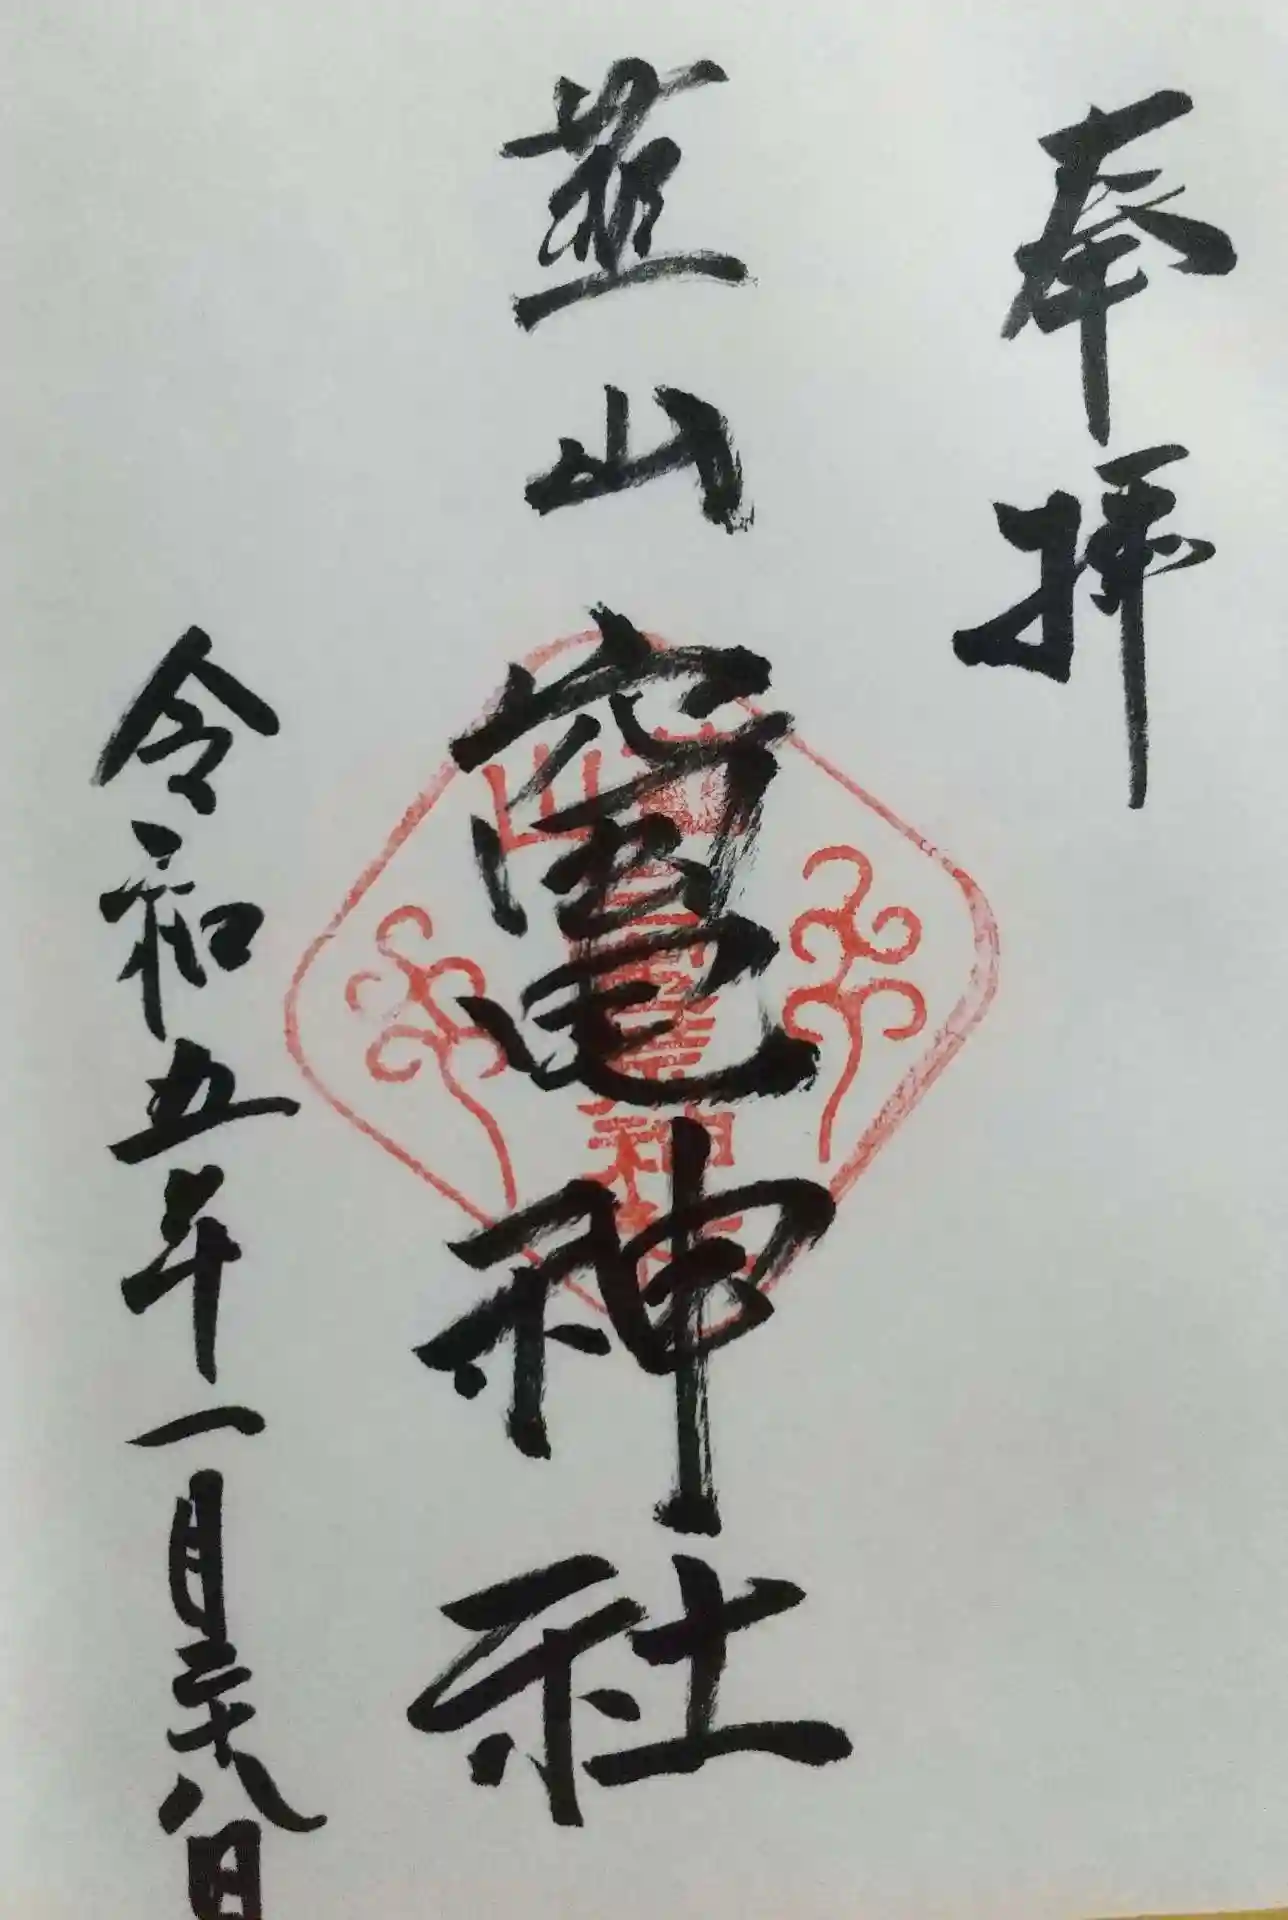 奉拝
韮山竈神社
令和五年一月二十八日